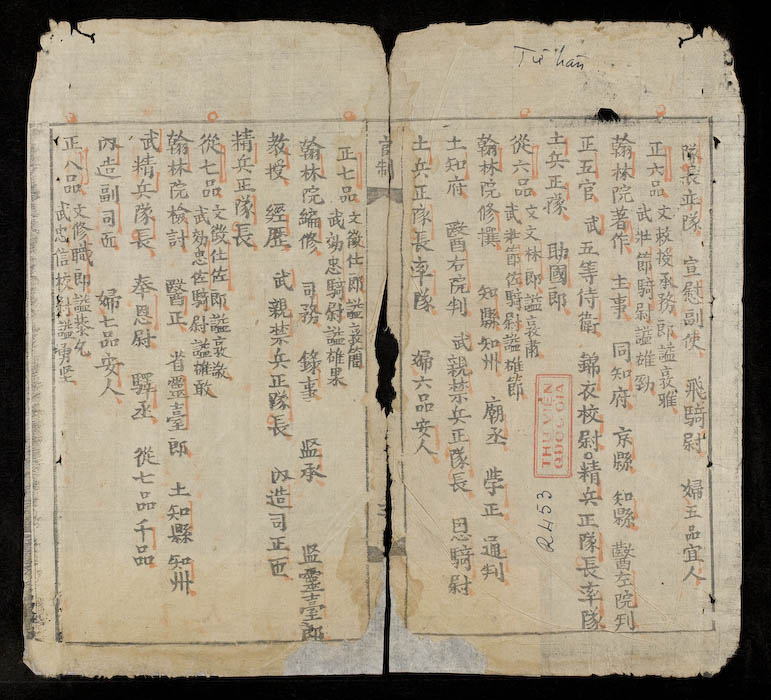 Tự hàn
隊長正隊 宣慰副使 飛騎尉 婦五品宜人
正六品 文敕授承務郎謚哀雅
武壯節騎尉謚雄勁
翰林院著作 主事 同知府 京縣 知縣 醫左院判
正五官 武五等侍衛 錦衣校尉 精兵正隊長率隊
土兵正隊 助國郎
從六品 文文林郎謚哀
武壯節佐騎尉謚雄節
翰林院修撰 知縣知州 廟丞 學正 通判
土知府 醫右院判 武親禁兵正隊長 恩騎尉
土兵正隊長率隊 婦六品安人
THƯ VIỆN
QUỐC GIA
R.453
官制
正七品 文徵仕郎謚哀簡
武効忠騎尉謚雄果
翰林院編修 司務 錄事 监承 监靈臺郎
教授 經歷 武親禁兵正隊長 內造司正匠
精兵正隊長
從七品 文徵仕佐郎謚哀敏
武効忠佐騎尉謚雄敢
翰林院檢討 醫正 省靈臺郎 土知縣知州
武精兵隊長 奉恩尉 驛丞 從七品千品
內造副司匠 婦七品安人
正八品 文修職郎謚恭
武忠信校尉謚勇坚